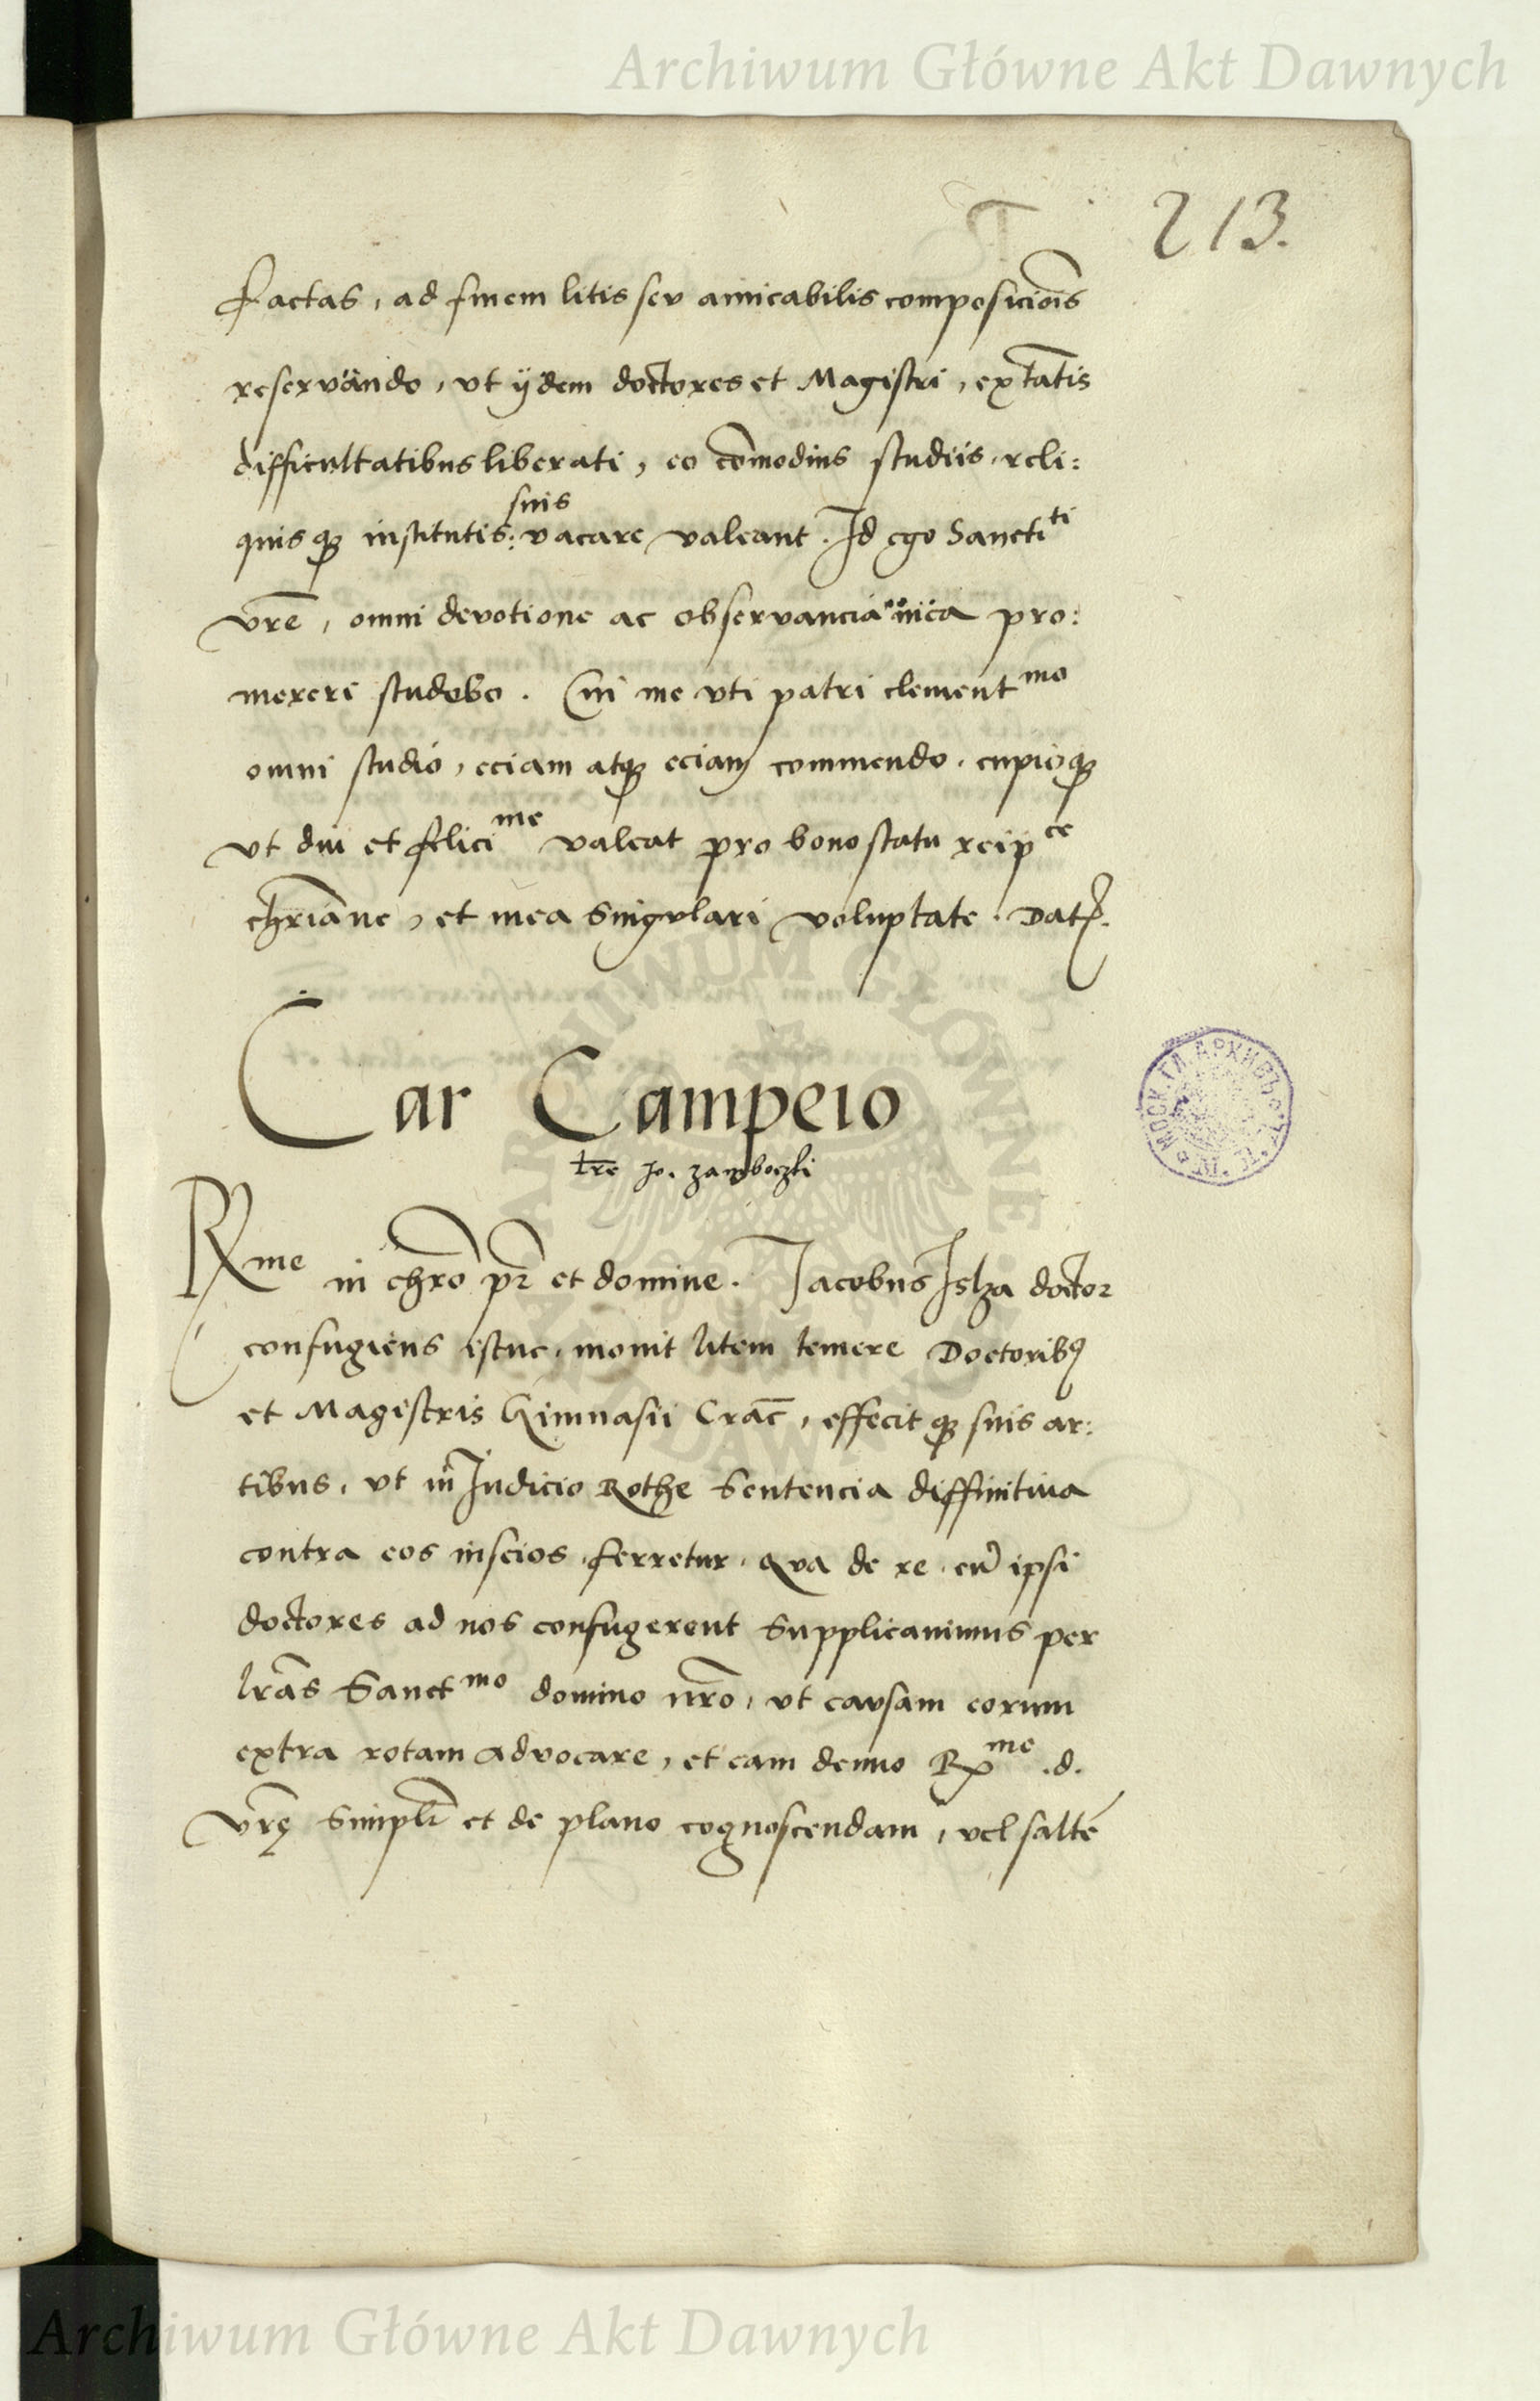 Archiwum Główne Akt Dawnych
213.
factas, ad finem litis seu amicabilis composiciōis
reservando, ut ijdem doctores et Magistri, ex tātis
difficultatibus liberati, eo cōmodius studiis, reli:
suis
quisq institutis: vacare valeant. Id ego Sancti ti
vrē, omni devotione ac observancia mea pro:
mereri studebo. Cui me uti patri clement mo
omni studio, eciam atq eciam commendo, cupioq
ut diu et felici me valeat pro bono statu reip ce
chriāne, et mea singulari voluptate. Dat.
Car Campeio
lre Jo. Zamboczki
R me in chro pr et domine. Jacobus Islza doctor
confugiens istuc, movit litem temere Doctorib9
et Magistris Gimnasii Crac, effecitq suis ar:
tibus, ut in Judicio Rothe Sentencia diffinitiva
contra eos inscios, ferretur, qua de re, cū ipsi
doctores ad nos confugerent supplicavimus per
lrās Sanct mo domino nrō, ut causam eorum
extra rotam advocare, et eam denuo R me .d.
vrę Simplr et de plano cognoscendam, vel saltē
ARCHIWUM GŁÓWNE AKT DAWNYCH
Archiwum Główne Akt Dawnych